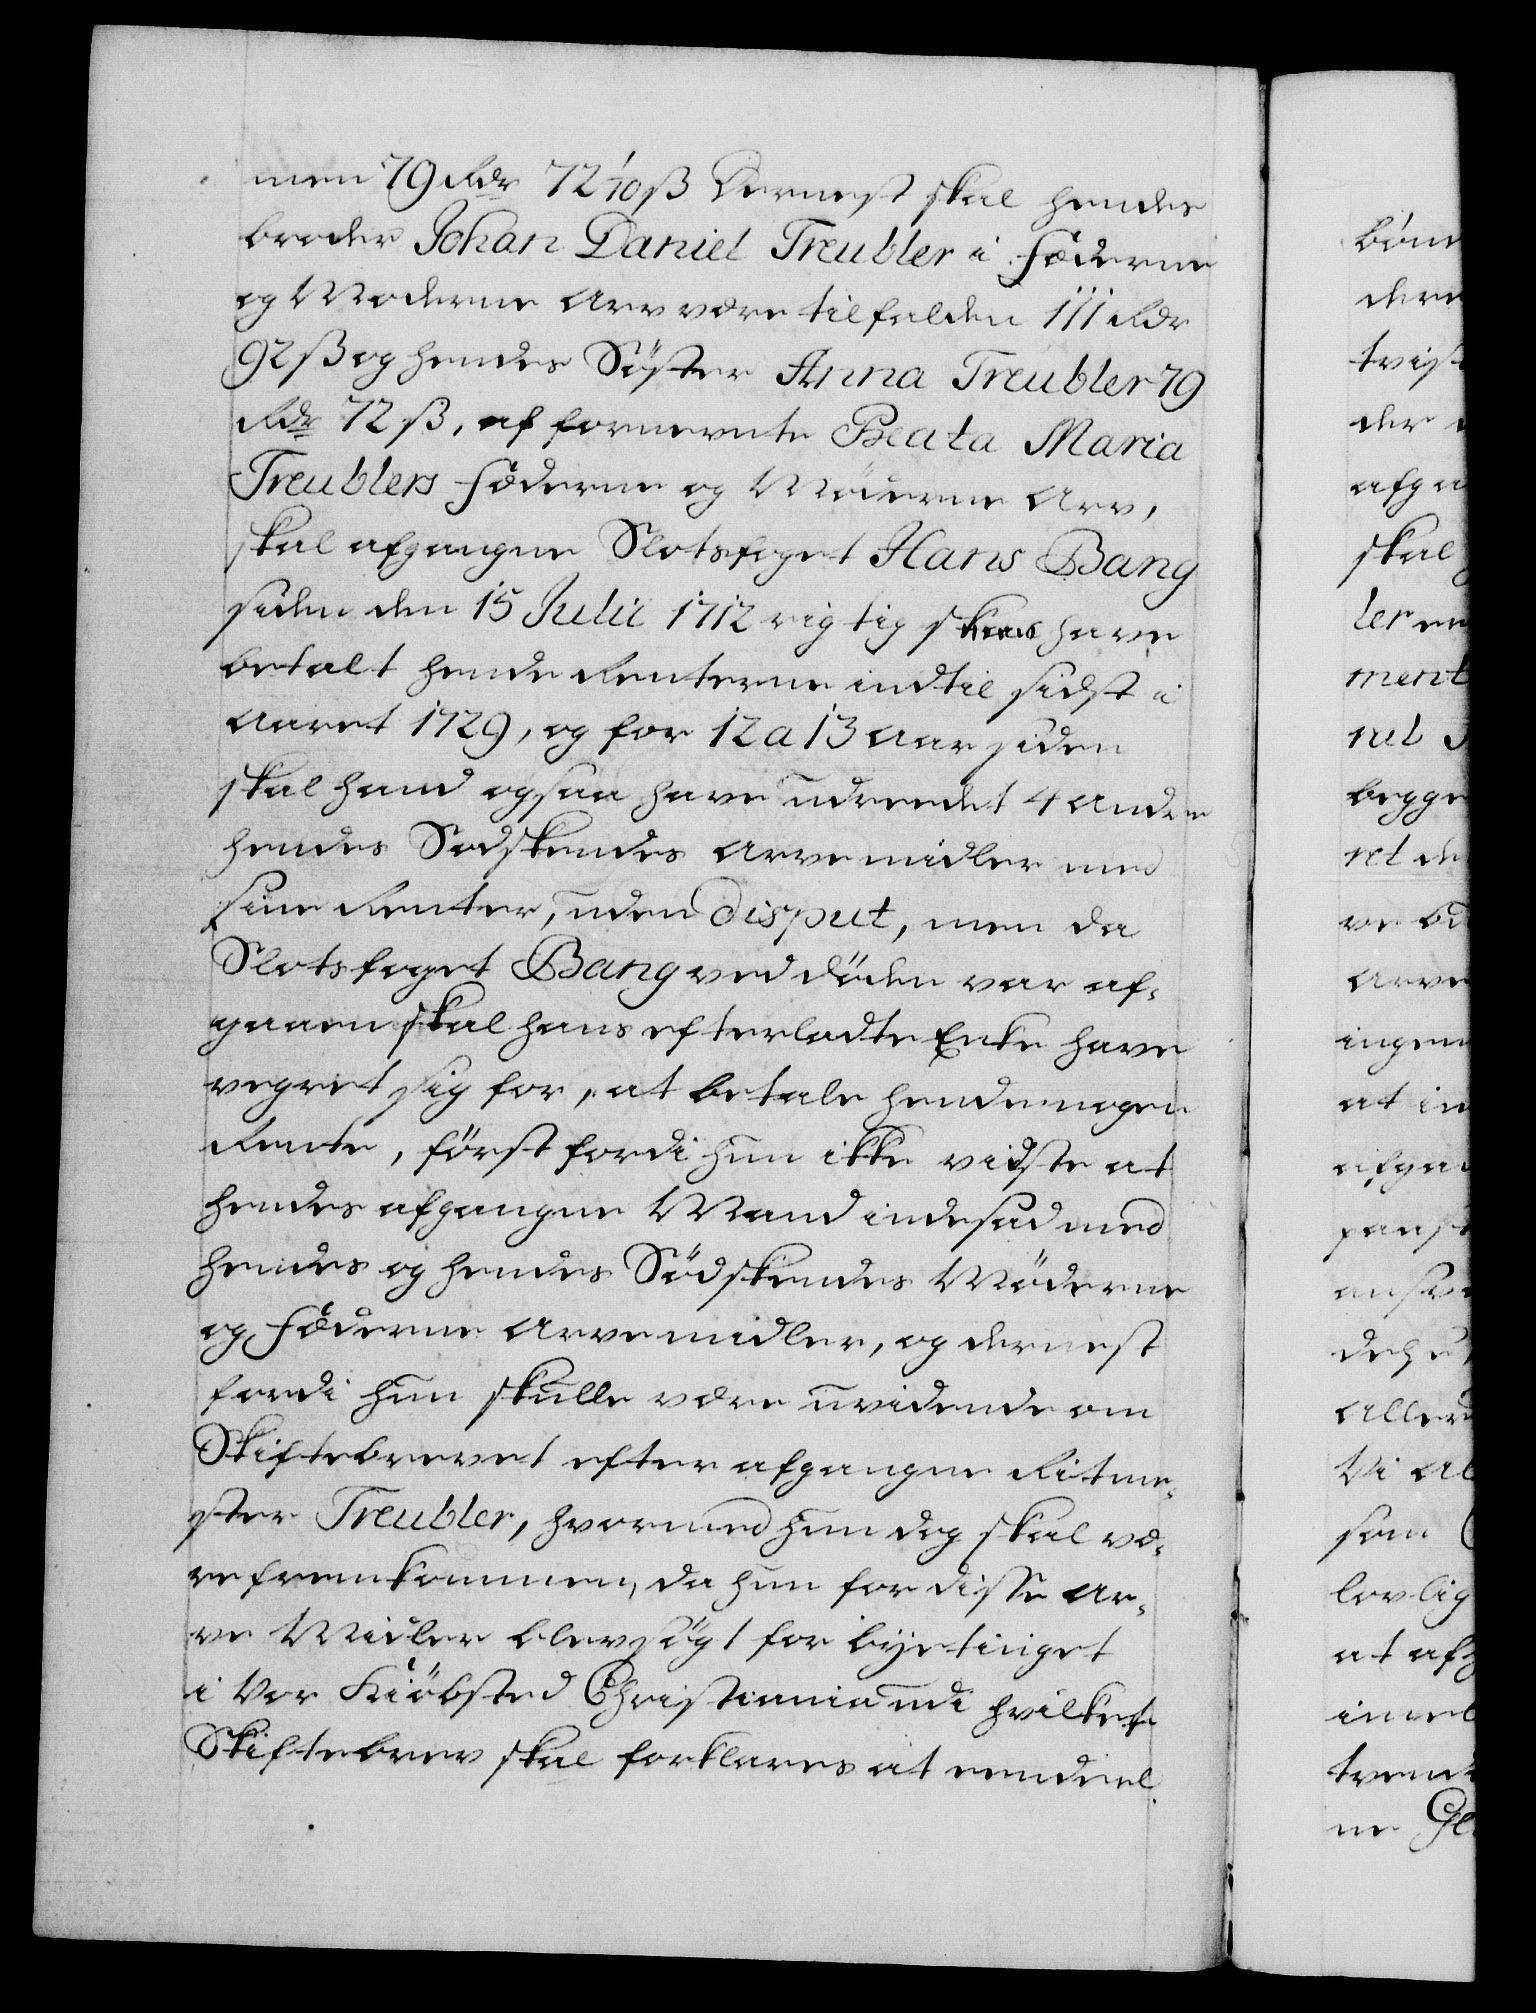 men 79 Rdr 72 1/10 ß Dernest skal hendes
broder Johan Daniel Treubler i Fæderne
og Moderne Arv være tilfalden 111 Rdr
92 ß og hendes Söster Anna Treubler 79
Rdr 72 ß, af fornevnte Beata Maria
Treublers Fæderne og Möderne Arv,
skal afgangne Slotsfoget Hans Bang
siden den 15 Julii 1712 rigtig have
betalt hende Renterne indtil sidst i
Aaret 1729, og for 12 a 13 Aar siden
skal hand ogsaa have udreedet 4 andre
hendes Sødskendes Arvemidler med
sine Renter, uden Disput, men da
Slotsfoget Bang ved döden var af-
gaaen skal hans efterladte Enke have
vegret sig for, at betale hende nogen
Rente, först fordi hun ikke vidste at
hendes afgangne Mand indesad med
hendes og hendes Södskendes Möderne
og Fæderne Arvemidler, og dernest
fordi hun skulle være uvidende om
Skiftebrevet efter afgangne Ritme-
ster Treubler, hvormed hun dog skal væ-
re fremkommen, da hun for disse Ar-
ve Midler blev sögt for byetinget
i Vor Kiöbsted Christiania udi hvilket
Skiftebrev skal forklares at eendeel